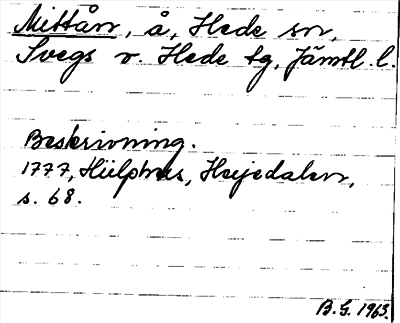 Mittån, å, Hede sn,
Svegs o. Hede tg, Jämtl. l.
Beskrivning.
1777, Hülphers, Herjedalen,
s. 68.
B.G. 1963.